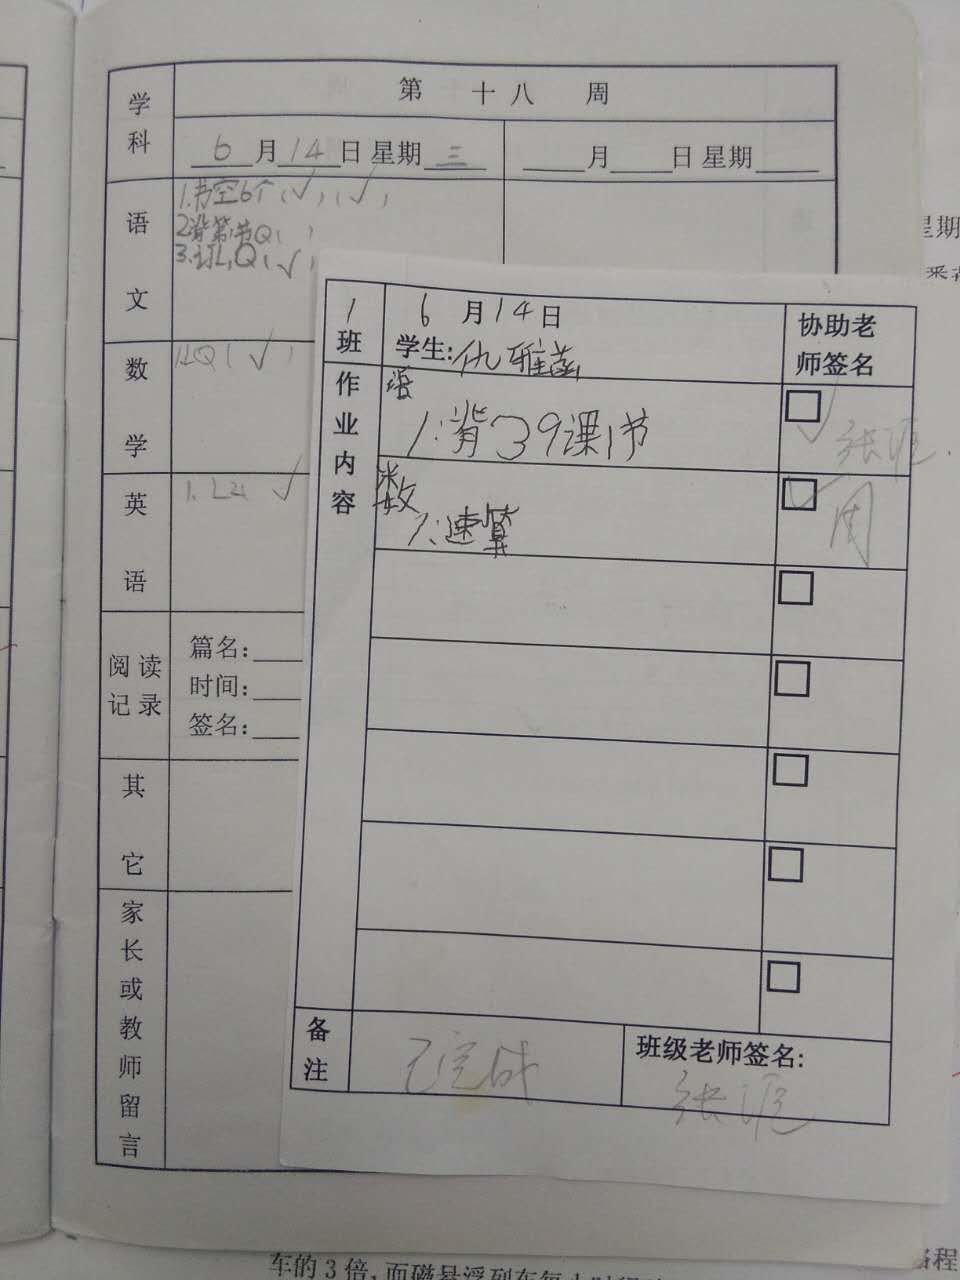 第 十八 周
学科
6月14日 星期三
月 日 星期
语文
1.书空6个(√)(√)
2.背第1节Q( )
3.订L,Q(√)
数学
(√)
英语
1. √
阅读记录
篇名:
时间:
签名:
其它
家长或教师留言
1班
6月14日
学生:仇雅菡
协助老师签名
作业内容
语
1:背39课1节
√
数
1:速算
√ 周
备注
已完成
班级老师签名:
星期
车的3倍,而磁悬浮列车每小时
路程